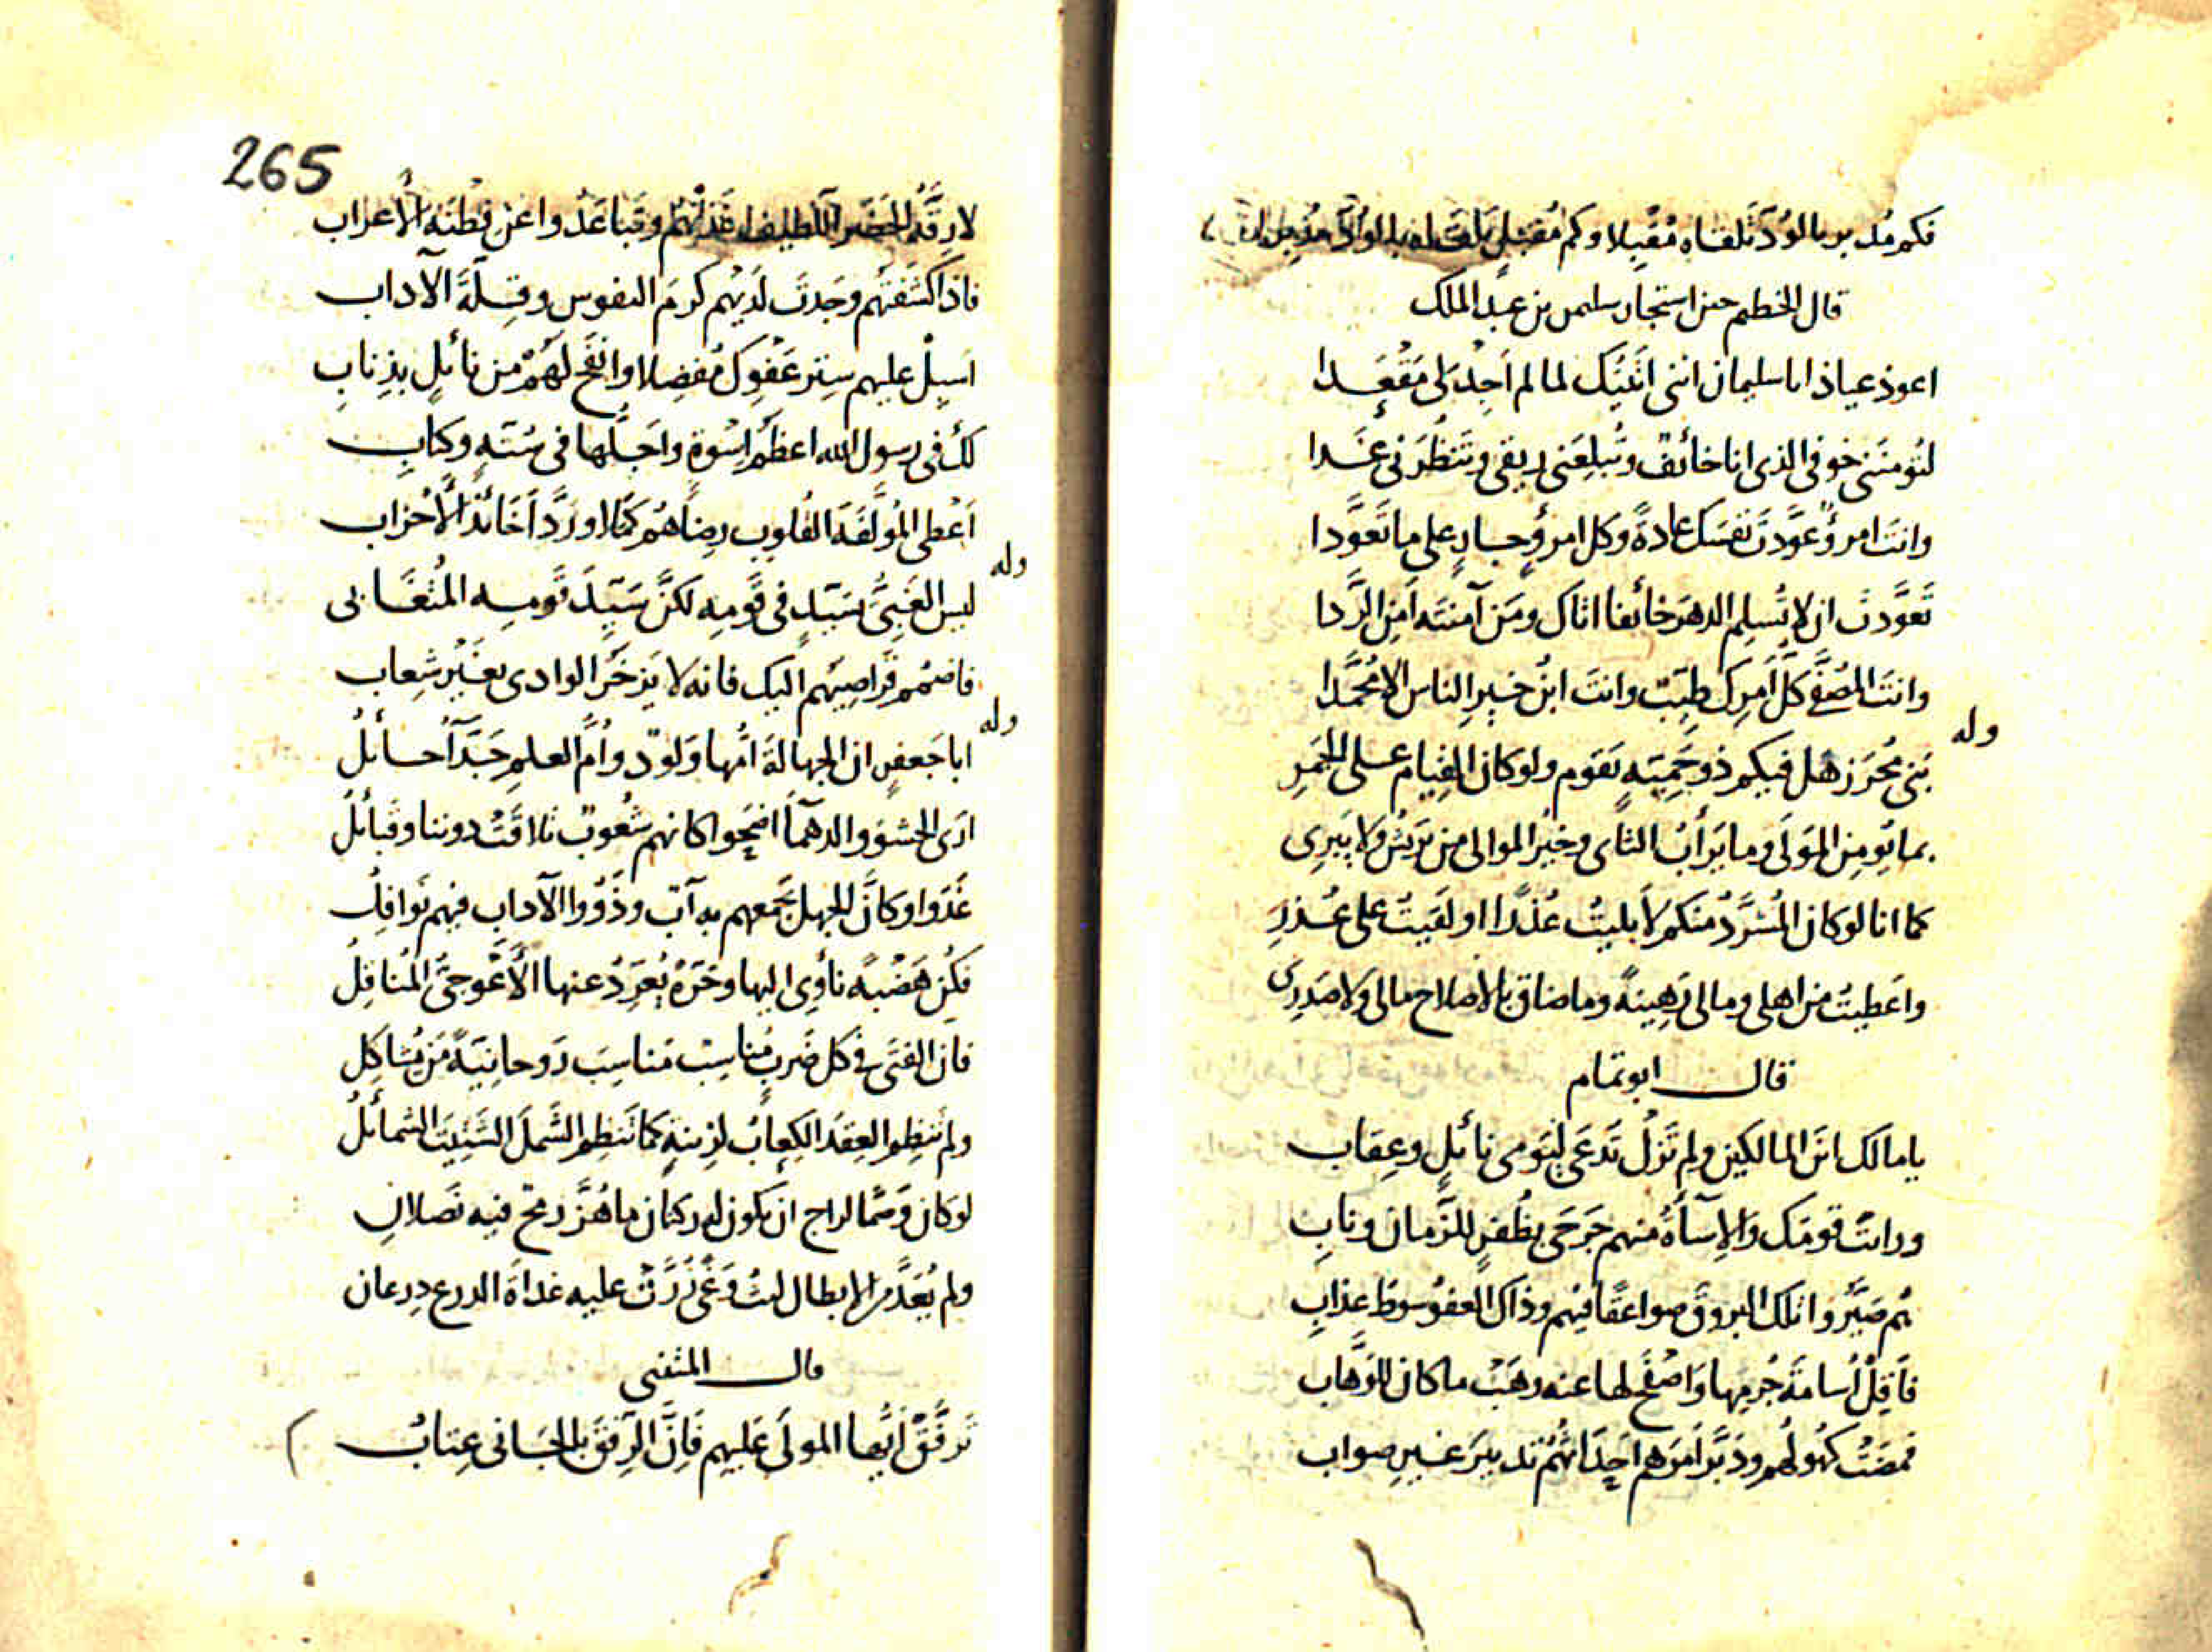 فكم مدبر بالود تلقاه مقبلا وكم مقبل تلقاه بالود مدبرا
قال الخطيم حين استجار سليمن بن عبد الملك
اعوذ عياذا يا سليمان اننى اتيتك لما لم اجد لى مقعدا
لتومننى خوف الذى انا خائف وتبلعنى ريقى وتنظرنى غدا
وانت امرؤ عودت نفسك عادة وكل امرؤ جار على ما تعودا
تعودت ان لا تسلم الدهر خائفا اتاك ومن آمنته امن الردا
وانت المصفى كل امرك طيب وانت ابن خير الناس الا محمدا
وله
بنى محرز هل فيكم ذو حمية يقوم ولو كان القيام على الجمر
بما يومن المولى وما يرأب الثأى وخير الموالى من يريش ولا يبرى
كما انا لو كان المشرد منكم لأبليت عذرا او لقيت على عذر
واعطيت من اهلى ومالى رهينة وما ضاق بالاصلاح مالى ولا صدرى
قال ابو تمام
يا مالك ابن المالكين ولم تزل تدعى ليومى نائل وعقاب
ورايت قومك والاسآءة منهم جرحى بظفر للزمان وناب
هم صيروا تلك البروق صواعقا فيهم وذاك العفو سوط عذاب
فأقل أسامة جرمها واصفح لها عنه وهب ما كان للوهاب
فمضت كهولهم ودبر امرهم احداثهم تدبير غير صواب
265
لا رقة الحضر اللطيف غذتهم وتباعدوا عن فطنة الأعراب
فاذا كشفتهم وجدت لديهم كرم النفوس وقلة الآداب
اسبل عليهم ستر عفوك مفضلا وانفح لهم من نائل بذناب
لك فى رسول الله اعظم اسوة واجلها فى سنة وكتاب
أعطى المؤلفة القلوب رضاهم كملا ورد أخائذ الأحزاب
وله
ليس الغبى بسيد فى قومه لكن سيد قومه المتغابى
فاضمم قواصيهم اليك فانه لا يزخر الوادى بغير شعاب
وله
ابا جعفر ان الجهالة امها ولود وأم العلم جدآء حائل
ارى الحشو والدهمآ اضحوا كانهم شعوب تلاقت دوننا وقبائل
غدوا وكأن الجهل يجمعهم به آب وذوو الآداب فيهم نوافل
فكن هضبة نأوى اليها وحرة يعرد عنها الأعوجى المناقل
فان الفتى فى كل ضرب مناسب مناسب روحانية من يشاكل
ولم تنظم العقد الكعاب لزينة كما تنظم الشمل الشتيت الشمائل
لو كان وصما لراج ان يكون له ركنان ما هز رمح فيه نصلان
ولم يعد من الابطال ليث وغى زرت عليه غداة الدرع درعان
قال المتنبى
ترفق أيها المولى عليهم فان الرفق بالجانى عتاب